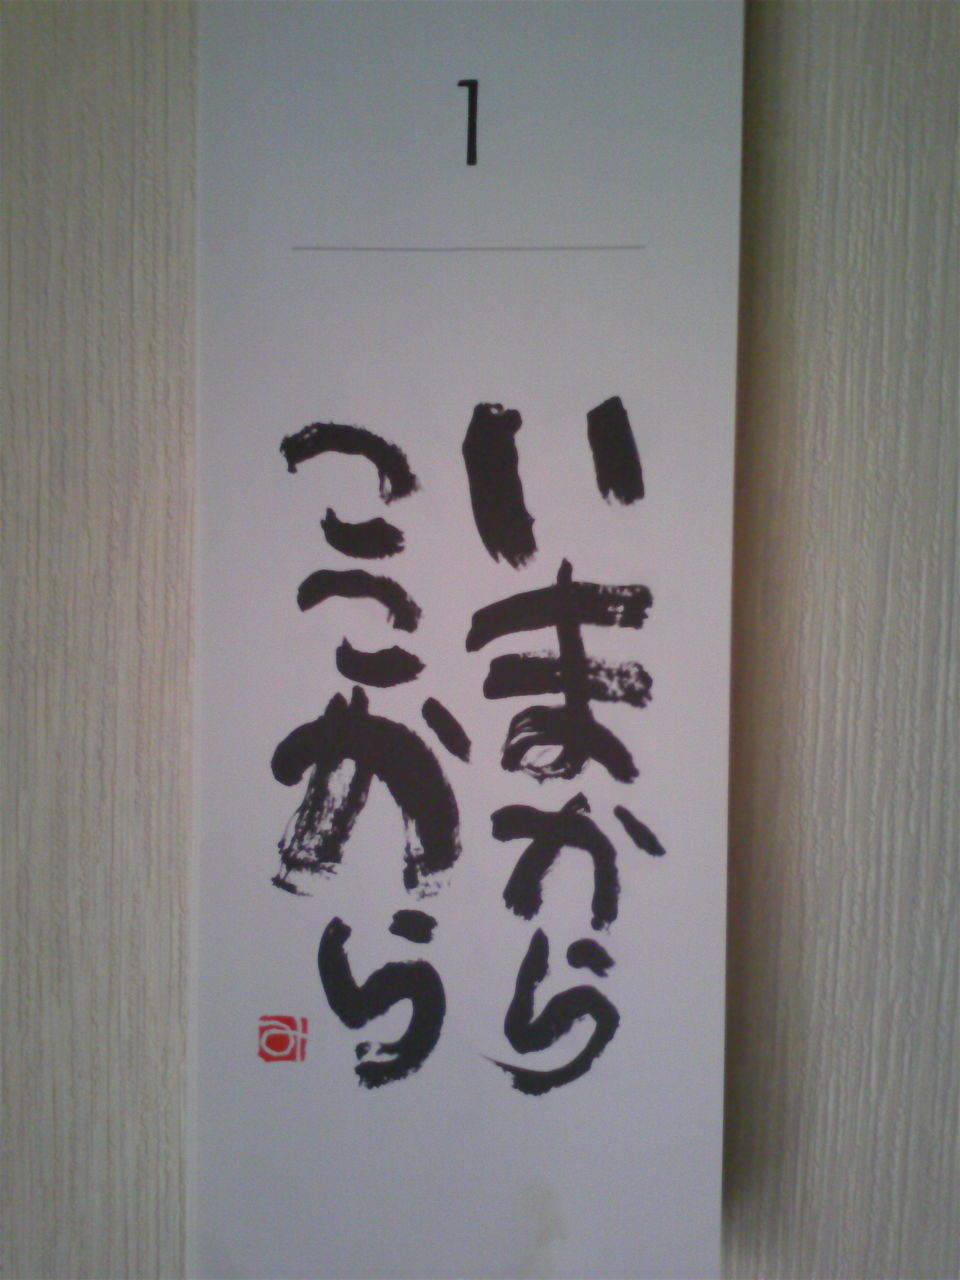 1
いまから
ここから
み